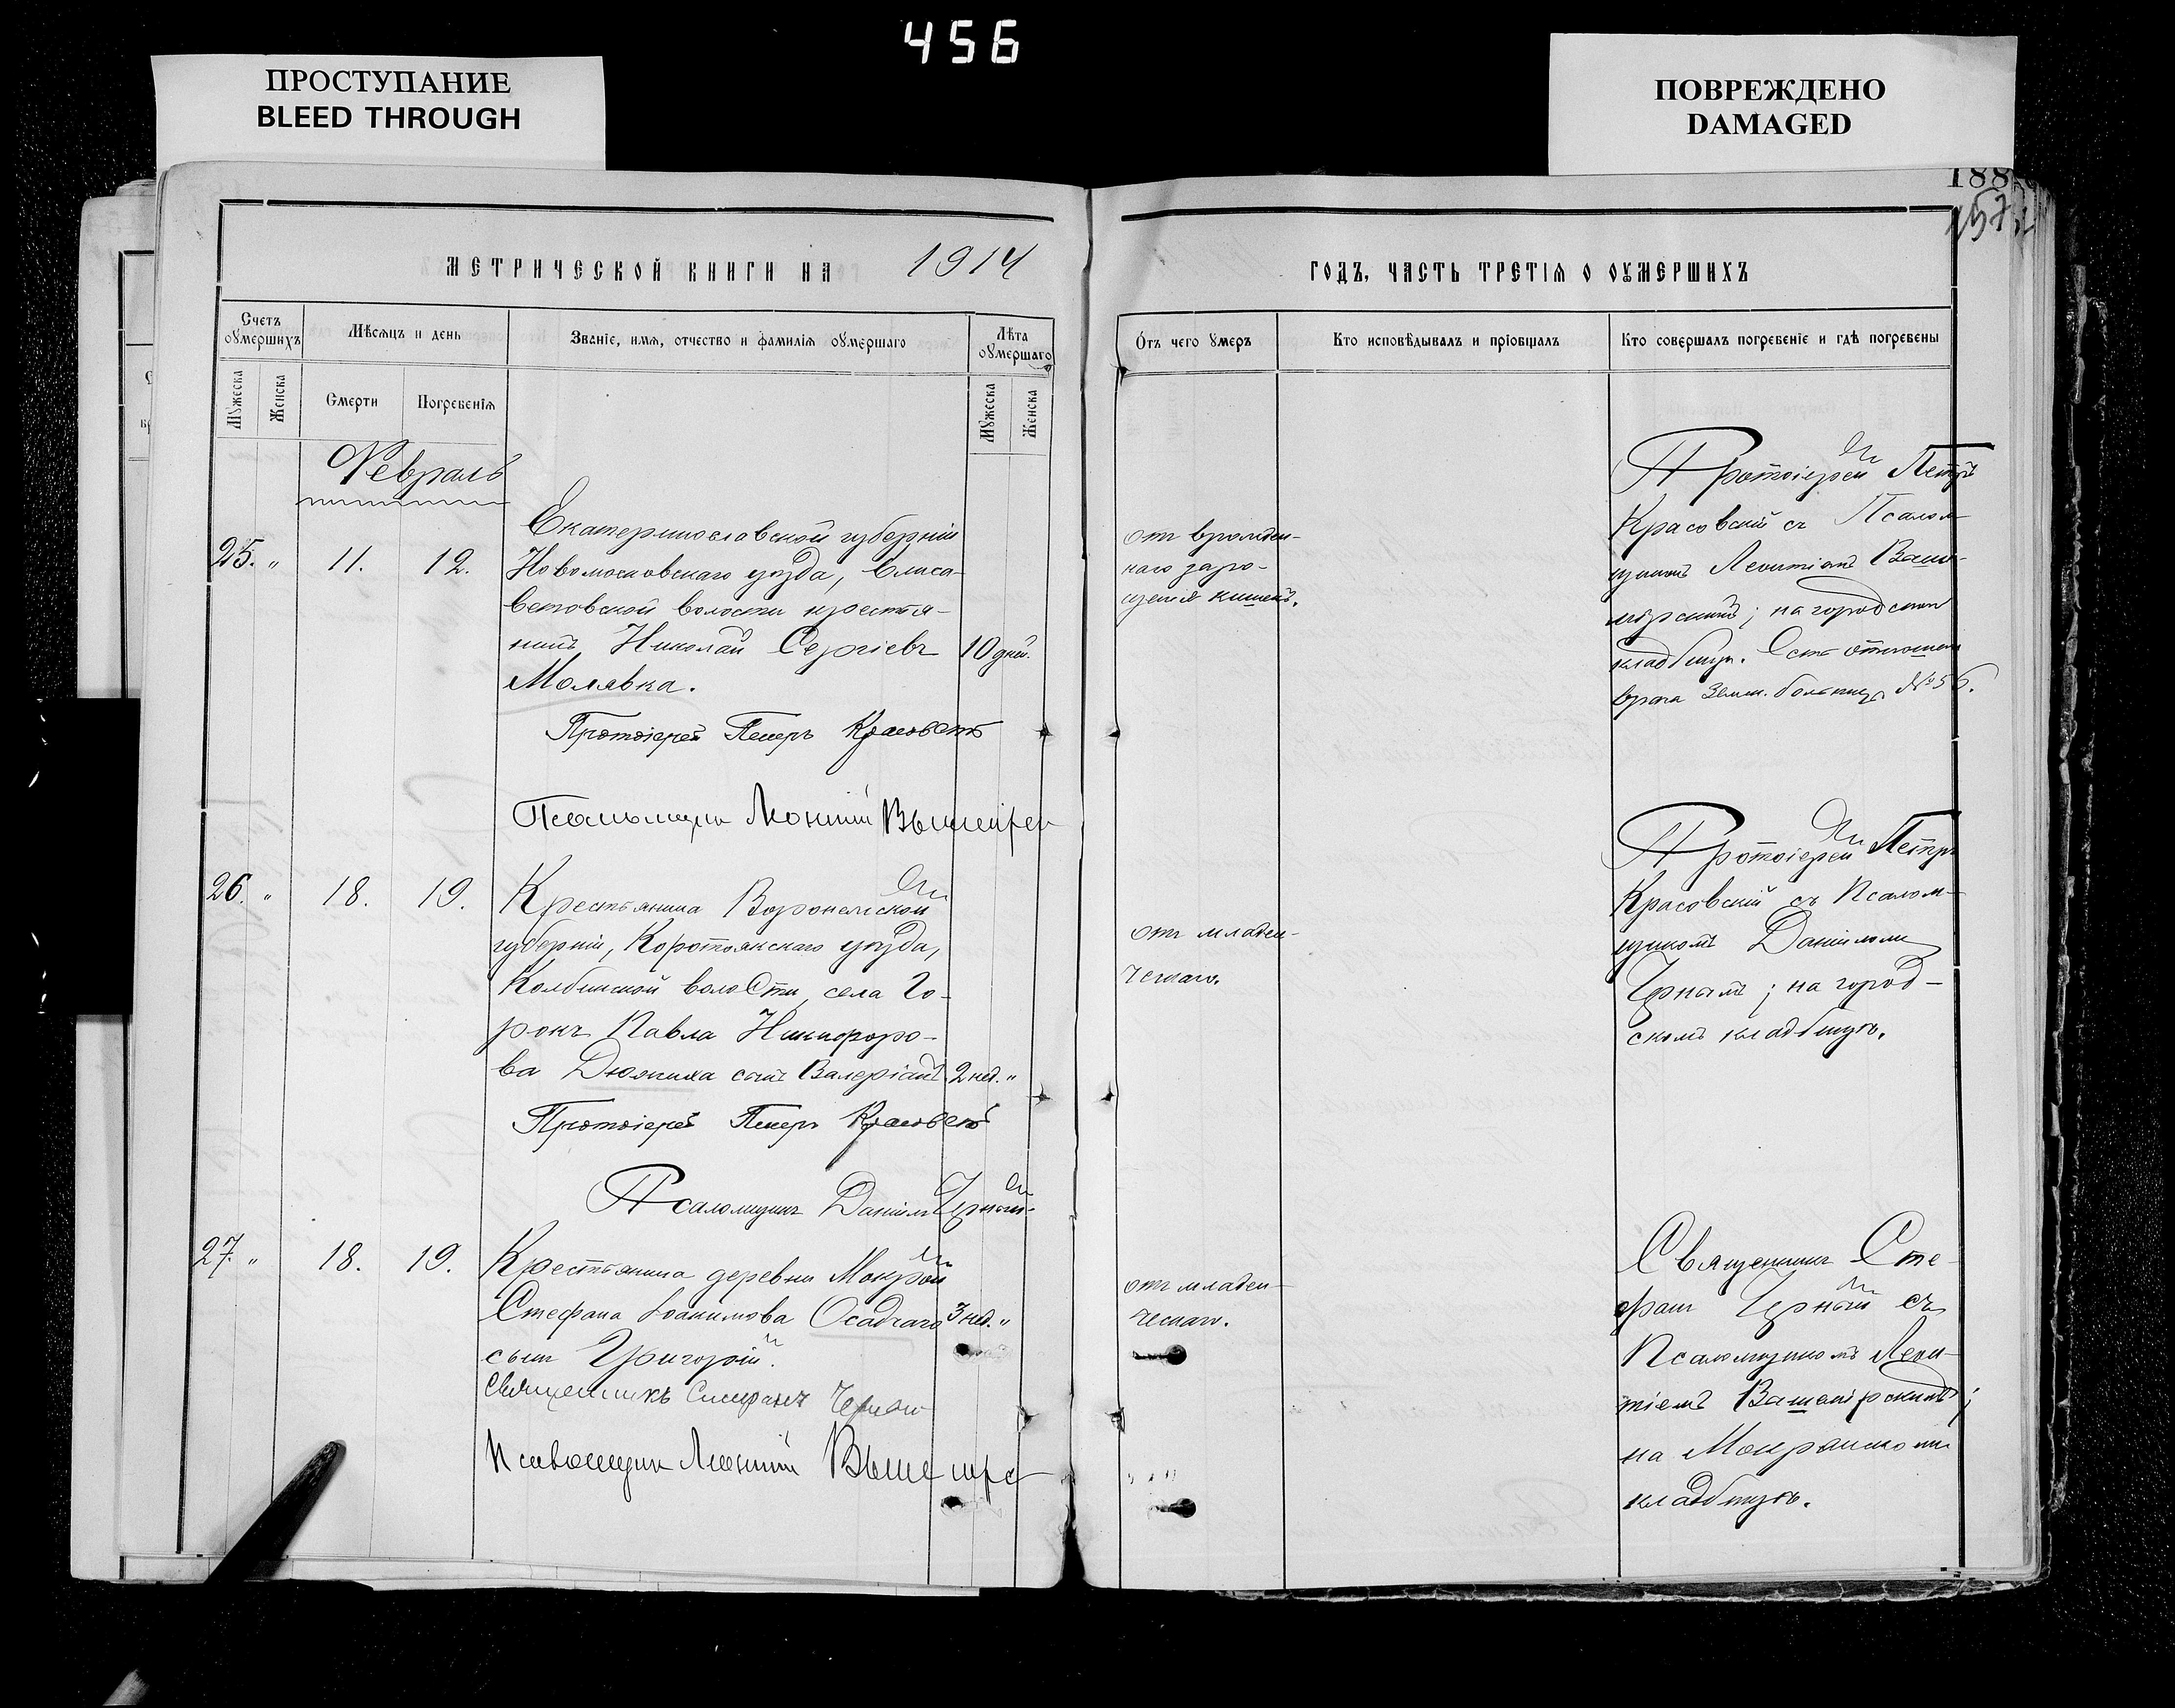 456
ПРОСТУПАНИЕ
BLEED THROUGH
ПОВРЕЖДЕНО
DAMAGED
188
157
МЕТРИЧЕСКОЙ КНИГИ НА 1914
ГОДЪ, ЧАСТЬ ТРЕТІѦ О ОУМЕРШИХЪ
Счетъ оумершихъ
Мѣсяцъ и день
Званіе, имя, отчество и фамилія оумершаго
Лѣта оумершаго
Мужеска
Женска
Смерти
Погребенія
Мужеска
Женска
Отъ чего умеръ
Кто исповѣдывалъ и пріобщалъ
Кто совершалъ погребеніе и гдѣ погребены
Февраль
25. „ 11. 12.
Екатеринославской губерніи
Новомосковскаго уѣзда, Елиса-
ветовской волости крестья-
нинъ Николай Сергіевъ 10 дней.
Молявка.
Протоіерей Петръ Красовскій
Псаломщикъ Леонтій
отъ врожден-
наго заро-
щенія кишекъ.
Протоіерей Петръ
Красовскій съ Псалом-
щикомъ Леонтіемъ
на городскомъ
кладбищѣ. Есть отношеніе
врача Земск. больницы № 56.
26. „ 18. 19.
Крестьянина Воронежской
губерніи, Коротоякскаго уѣзда,
Колбинской волости, села Го-
рокъ Павла Никифоро-
ва сынъ Валеріанъ 2 нед. „
Протоіерей Петръ Красовскій
Псаломщикъ Даніилъ Черный
отъ младен-
ческаго.
Протоіерей Петръ
Красовскій съ Псалом-
щикомъ Даніиломъ
Чернымъ; на город-
скомъ кладбищѣ.
27. „ 18. 19.
Крестьянина деревни Мокрой
Стефана Іоакимова Осадчаго 3 нед. „
сынъ Григорій.
Священникъ Стефанъ Черный
Псаломщикъ Леонтій
отъ младен-
ческаго.
Священникъ Сте-
фанъ Черный съ
Псаломщикомъ Леон-
тіемъ
на Мокрянскомъ
кладбищѣ.